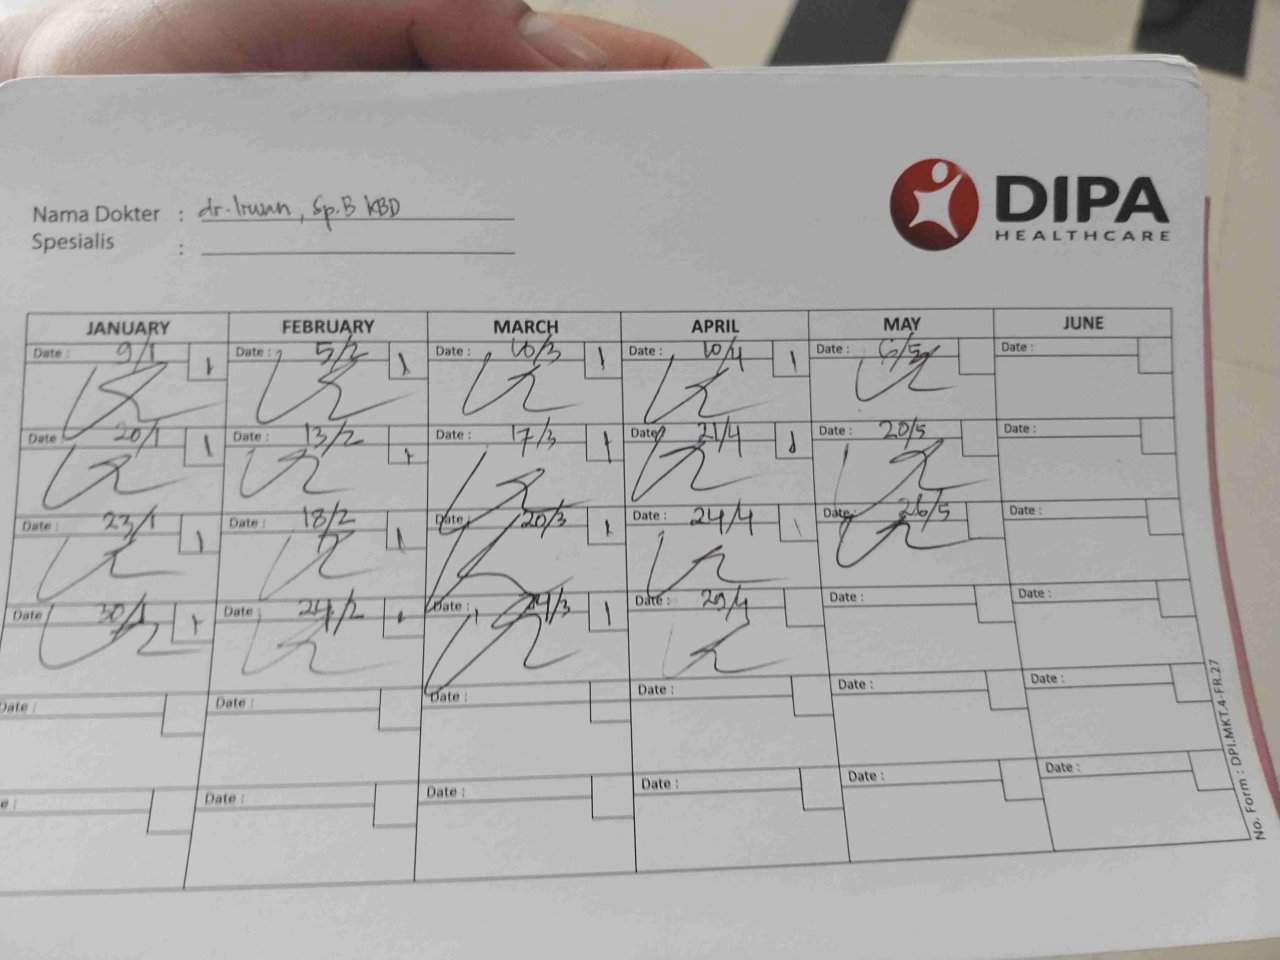 DIPA
HEALTHCARE
Nama Dokter : dr. Irwan, Sp.B KBD
Spesialis :
JANUARY FEBRUARY MARCH APRIL MAY JUNE
Date : 9/1 1 Date : 5/2 1 Date : 10/3 1 Date : 10/4 1 Date : 6/5 Date :
Date 20/1 1 Date : 13/2 1 Date : 17/3 1 Date 21/4 1 Date : 20/5 Date :
Date : 23/1 1 Date : 18/2 1 Date : 20/3 1 Date : 24/4 1 Date : 26/5 Date :
Date 30/1 1 Date : 24/2 1 Date : 24/3 1 Date : 29/4 Date : Date :
Date : Date : Date : Date : Date : Date :
Date : Date : Date : Date : Date :
No. Form : DPI.MKT.4-FR.27